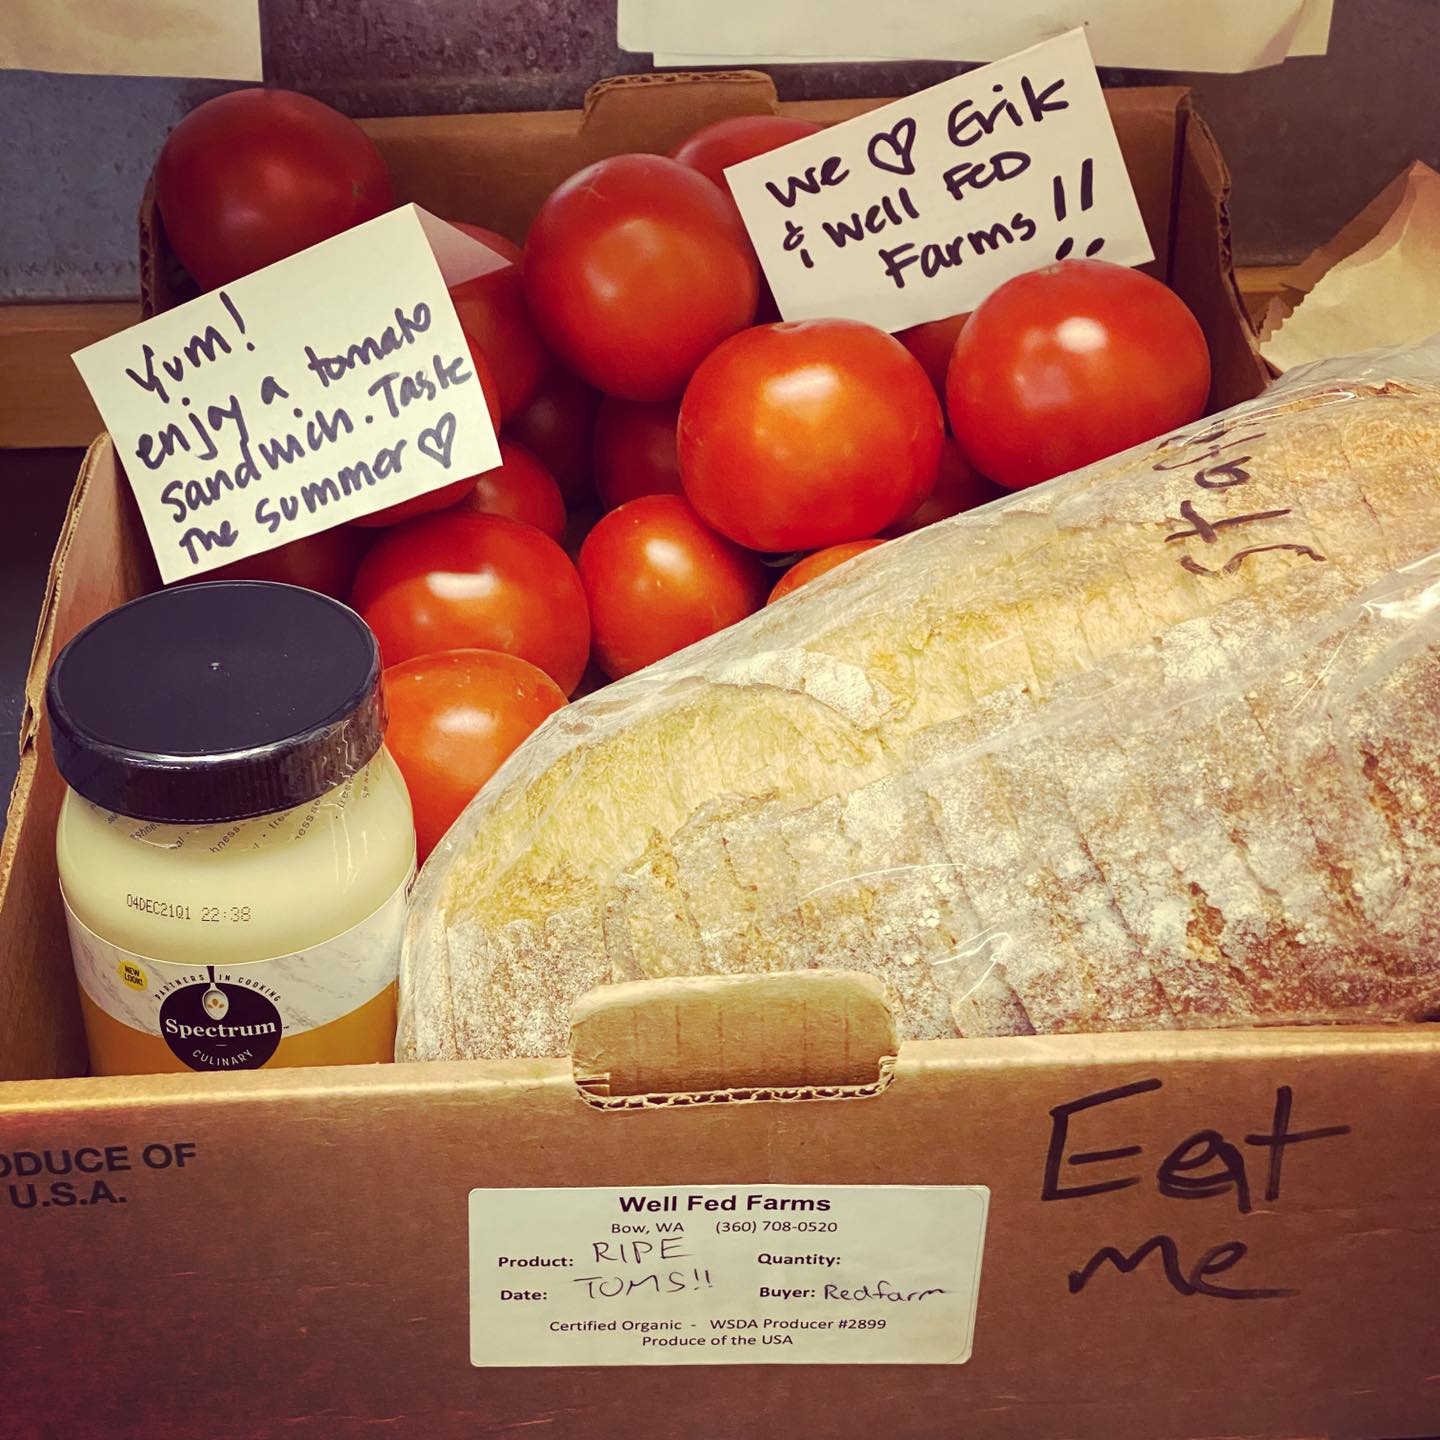 we ♡ Erik
& well FED
Farms!!
Yum!
enjoy a tomato
sandwich. Taste
The Summer ♡
04DEC21Q1 22:38
NEW
LOOK!
PARTNERS IN COOKING
Spectrum™
CULINARY
ODUCE OF
U.S.A.
Eat
me
Well Fed Farms
Bow, WA (360) 708-0520
Product: RIPE Quantity:
Date: TOMS!! Buyer: Redfarm
Certified Organic - WSDA Producer #2899
Produce of the USA